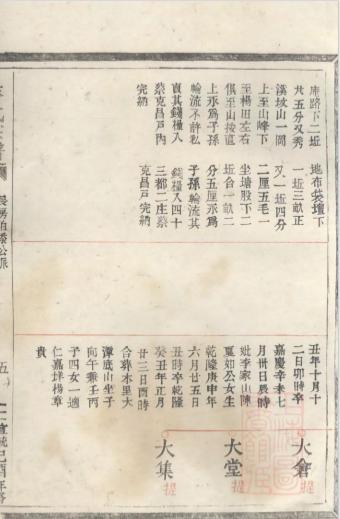 庫路下二坵
共五分又秀
溪坟山一
上至山峰下
至楊田左右
俱至山按直
上永為子孫
輪流不許私
賣其錢糧入
蔡克昌戶內
完納
地布袋壇下
一坵三畝正
又一坵四分
二厘五毛一
坐墻股下二
坵合一畝二
分五厘永為
子孫輪流其
錢糧入四十
三都二庄蔡
克昌戶完納
丑年十月十
二日卯時卒
嘉慶辛未七
月卅日辰時
妣李家山陳
夏如公女生
乾隆庚申年
六月廿五日
丑時卒乾隆
癸丑年正月
廿三日酉時
合葬本里大
潭底山坐子
向午兼壬丙
子四女一適
仁嘉垟楊章
貴
大會 提
大堂 提
大集 提
五
統己酉年